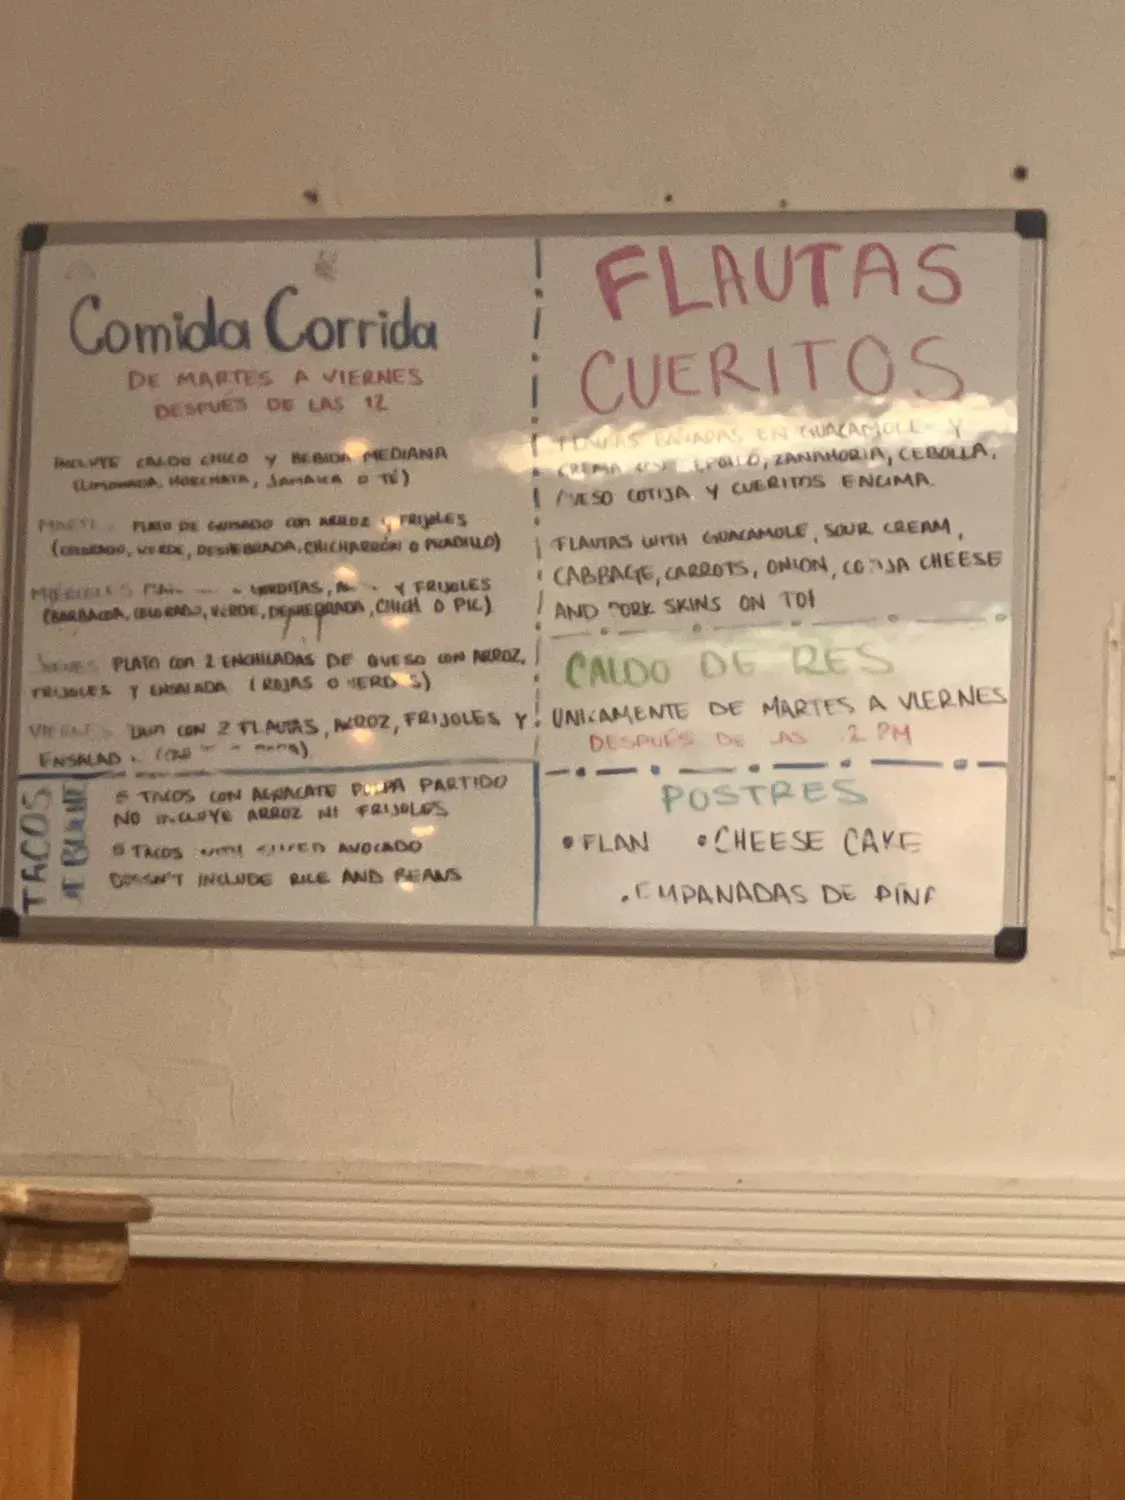 Comida Corrida
DE MARTES A VIERNES
DESPUÉS DE LAS 12
INCLUYE CALDO CHICO Y BEBIDA MEDIANA
(LIMONADA, HORCHATA, JAMAICA O TÉ)
PLATO DE GUISADO CON ARROZ Y FRIJOLES
(COLORADO, VERDE, DESHEBRADA, CHICHARRÓN O PICADILLO)
MIERCOLES Y FRIJOLES
(BARBACOA, COLORADO, VERDE, DESHEBRADA, CHICH O PIC)
JUEVES PLATO CON 2 ENCHILADAS DE QUESO CON ARROZ,
FRIJOLES Y ENSALADA (ROJAS O VERDES)
VIERNES CON 2 FLAUTAS, ARROZ, FRIJOLES Y
ENSALADA
TACOS
DE
5 TACOS CON AGUACATE PARTIDO
NO INCLUYE ARROZ NI FRIJOLES
5 TACOS WITH SLICED AVOCADO
DOESN'T INCLUDE RICE AND BEANS
FLAUTAS
CUERITOS
FLAUTAS BAÑADAS EN GUACAMOLE Y
CREMA CON REPOLLO, ZANAHORIA, CEBOLLA,
QUESO COTIJA Y CUERITOS ENCIMA.
FLAUTAS WITH GUACAMOLE, SOUR CREAM,
CABBAGE, CARROTS, ONION, COTIJA CHEESE
AND PORK SKINS ON TOP
CALDO DE RES
UNICAMENTE DE MARTES A VIERNES
DESPUÉS DE LAS 12 PM
POSTRES
• FLAN • CHEESE CAKE
• EMPANADAS DE PIÑA